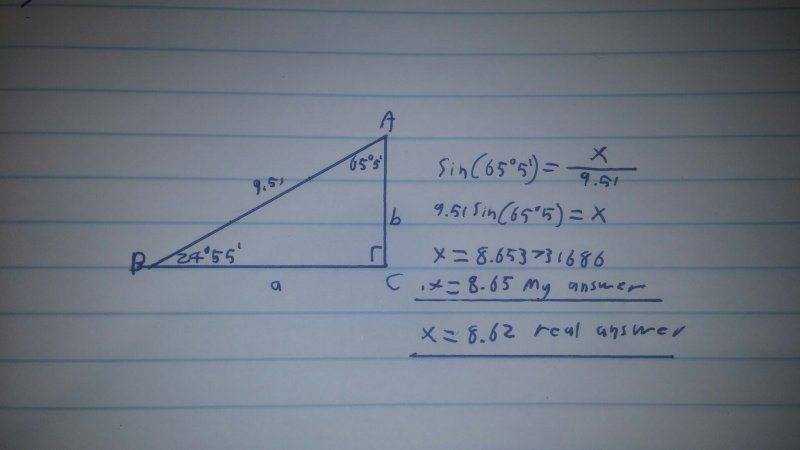 A
65°5'
9.51
b
B
24°55'
a
C
Sin(65°5') = x/9.51
9.51 Sin(65°5) = x
x = 8.653731686
.x = 8.65 My answer
x = 8.62 real answer